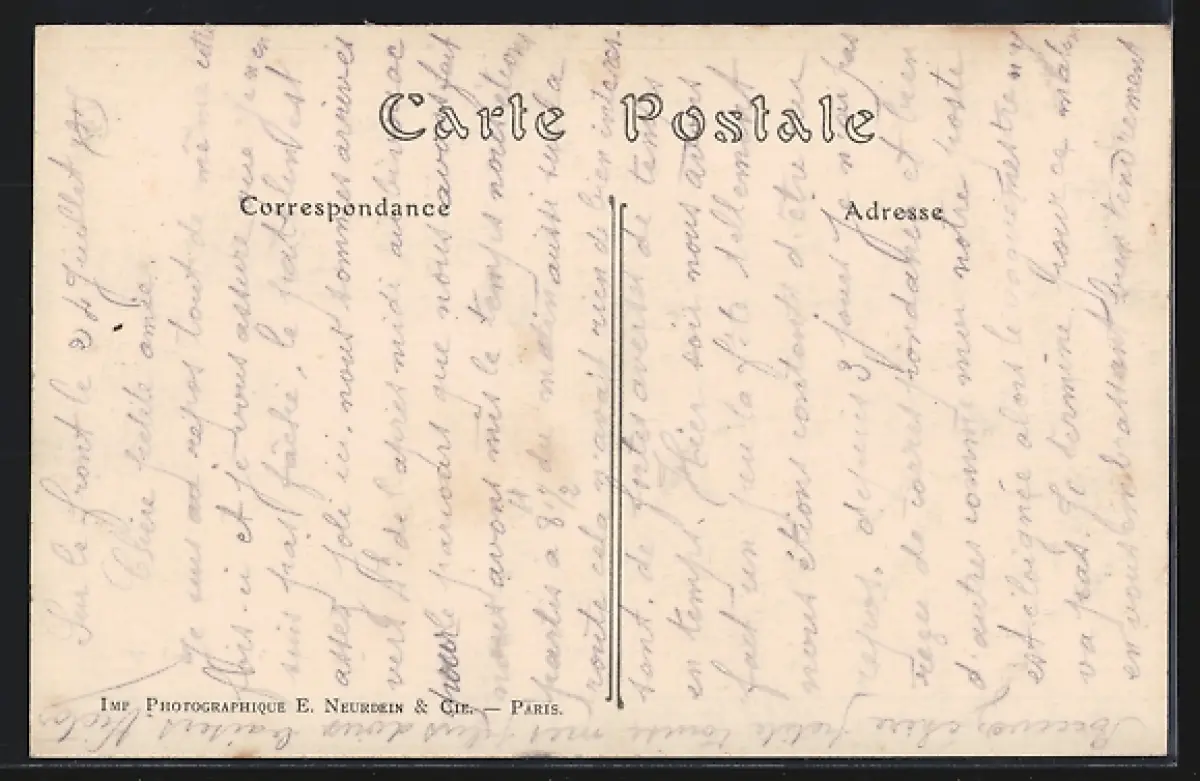 Carte Postale
Correspondance
Adresse
Sur le front le 24 Juillet
Chère petite amie
Je suis au repos tout de même cette
fois-ci et je vous assure que j'en
suis pas fâché, le patelin est
assez joli ici, nous sommes arrivés
vers 4h de l'après midi au bivouac
pour le parcours que nous avons fait
nous avons mis le temps nous étions
partis à 8h 1/2 du matin aussi sur la
route cela n'avait rien de bien intéres.
sant. de fortes averses de temps
en temps. Hier soir nous avons
fait un peu la fête tellement
nous étions contents d'être au
repos. depuis 3 jours je n'ai pas
reçu de correspondance et bien
d'autres comme moi notre poste
est éloignée alors le vaguemestre n'y
va pas. Je termine pour ce matin
en vous embrassant bien tendrement
Recevez chère petite Louise mes plus doux baisers
IMP PHOTOGRAPHIQUE E. NEURDEIN & CIE. — PARIS.